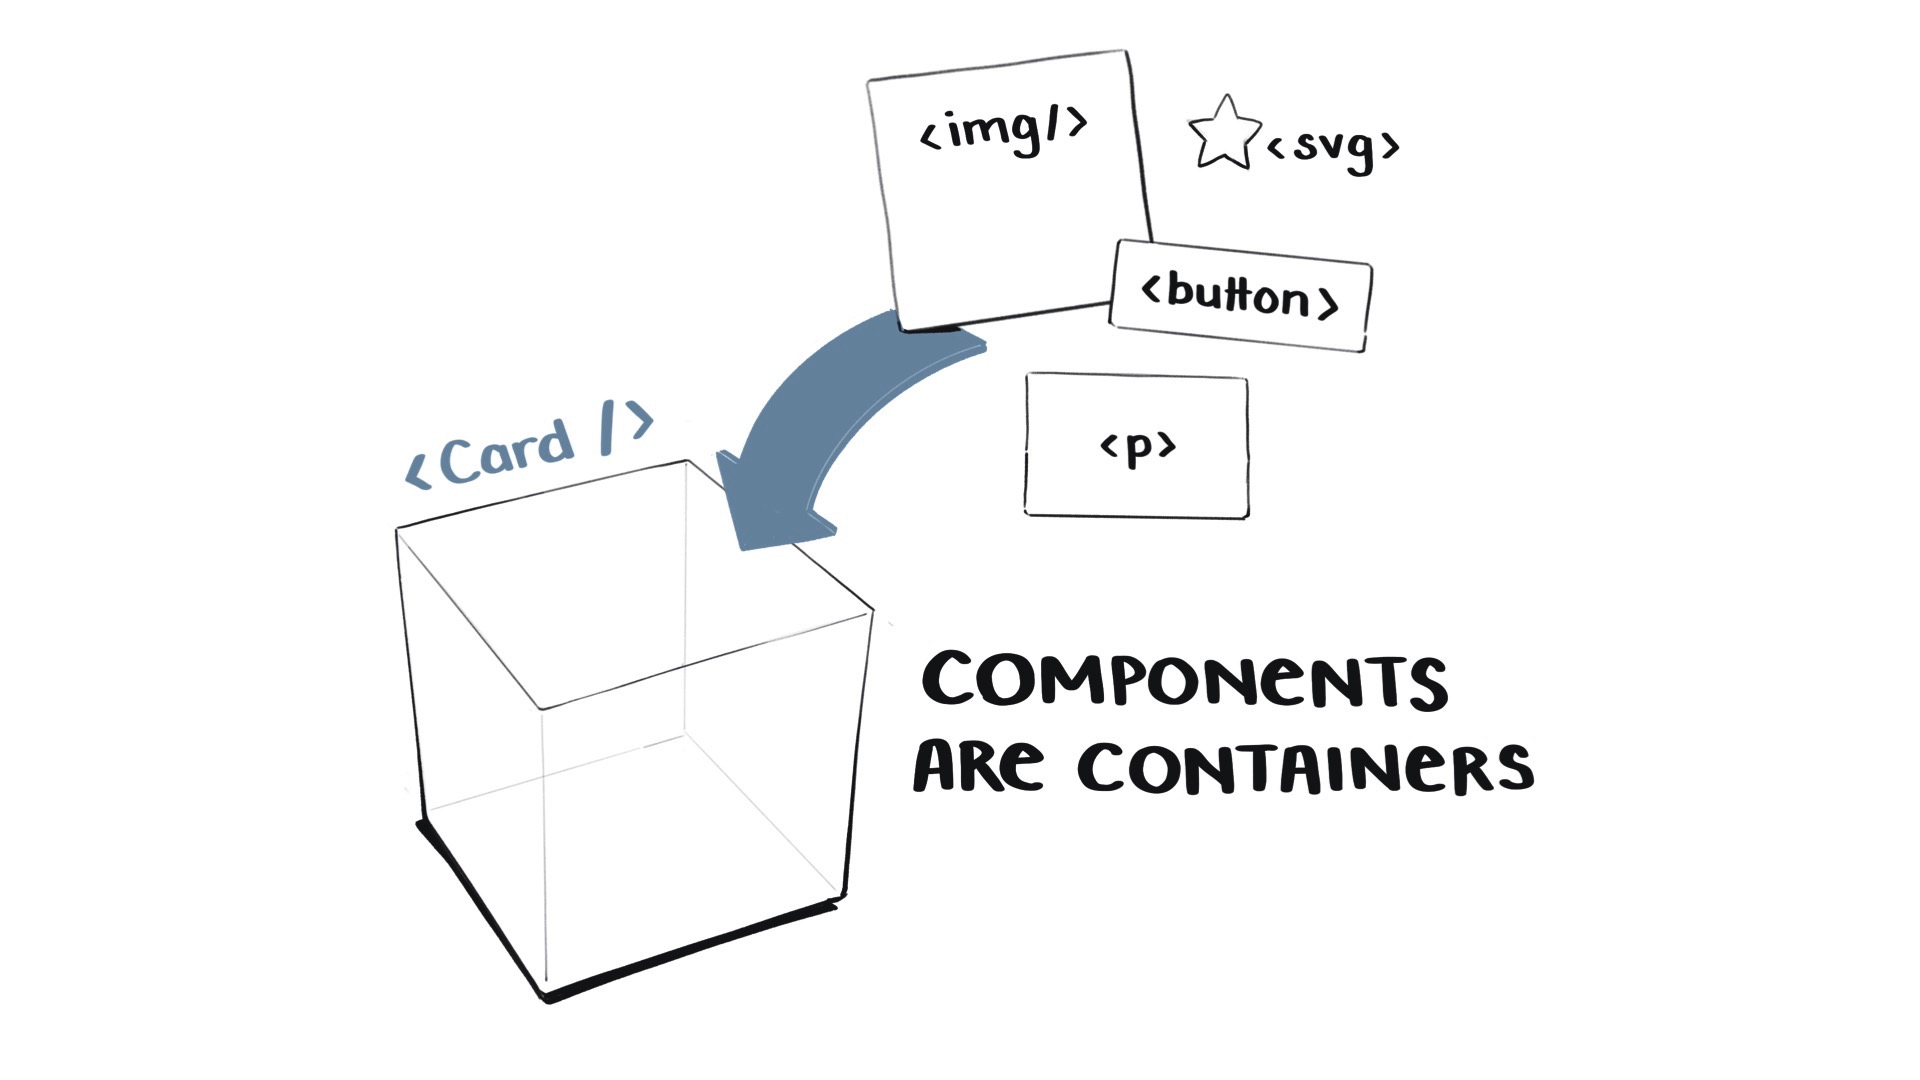 <img/>
<svg>
<button>
<Card />
<p>
COMPONeNTS
ARe CONTAINeRS